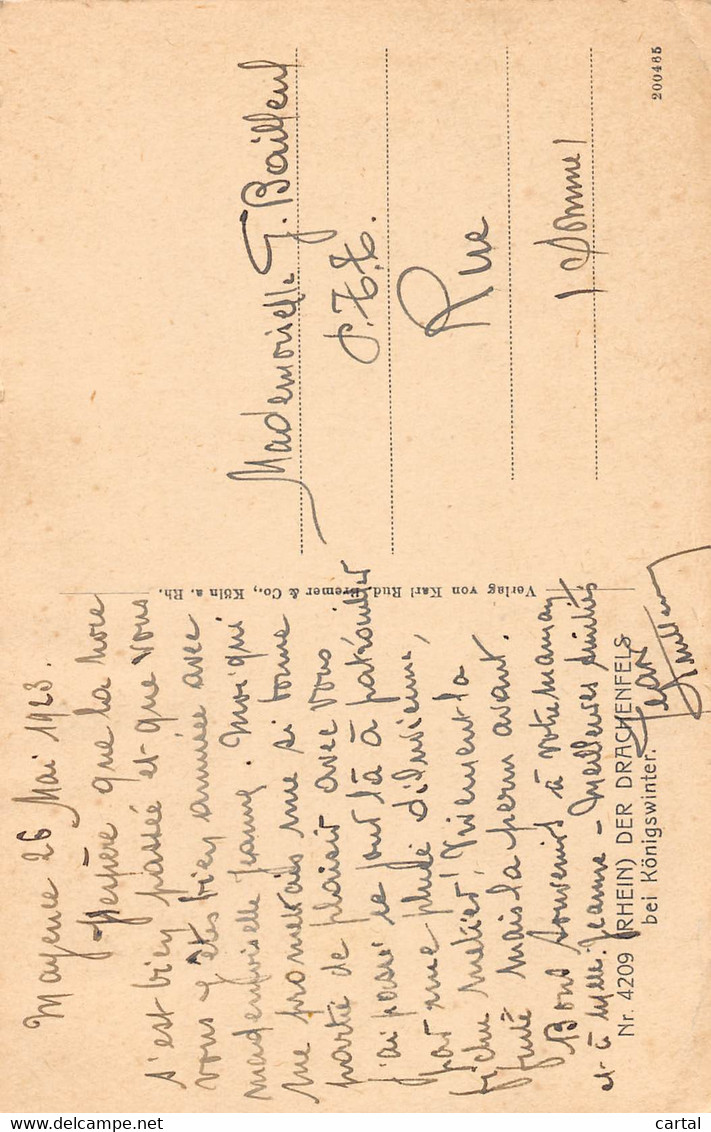 Mayence 26 Mai 1923.
J'espère que la noce
s'est bien passée et que vous
vous y êtes bien amusée avec
mademoiselle Jeanne. Moi qui
me promettais une si bonne
partie de plaisir avec vous
j'ai passé ce jour là à patrouiller
par une pluie diluvienne,
fichu métier! Vivement la
fuite mais la perm avant.
Bons souvenirs à votre maman
et à Mlle. Jeanne - Meilleures amitiés
Jean
Mademoiselle G. Bailleul
P.T.T.
Rue
(Somme)
Verlag von Karl Rud. Bremer & Co., Köln a. Rh.
Nr. 4209 (RHEIN) DER DRACHENFELS
bei Königswinter.
200485
delcampe.net
cartal